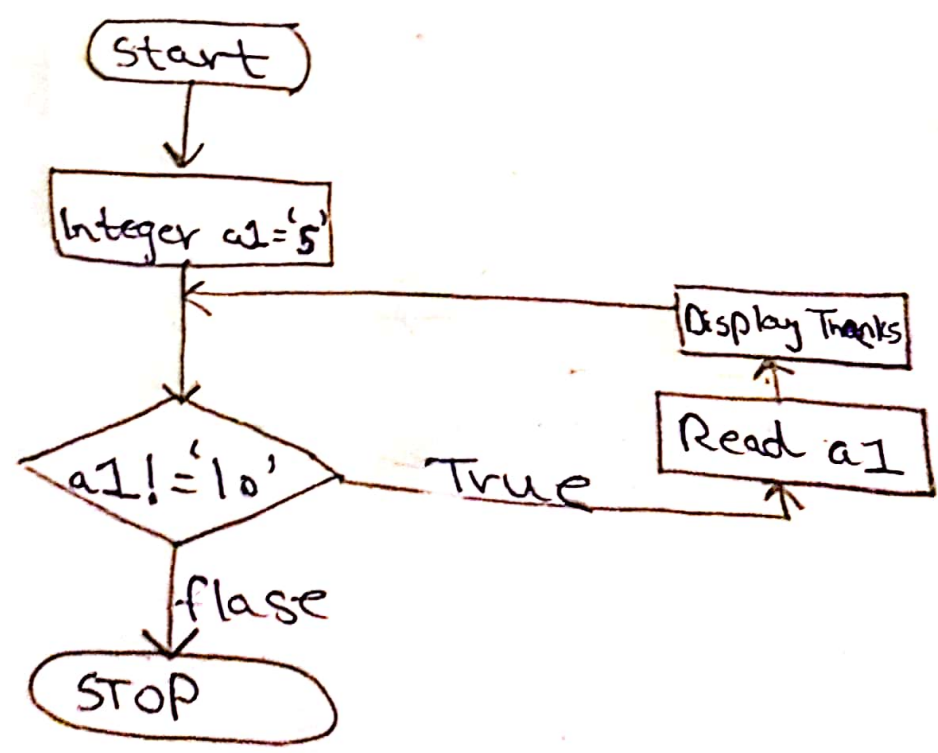 Start
Integer a1='5'
Display Thanks
Read a1
a1!='10'
True
flase
STOP